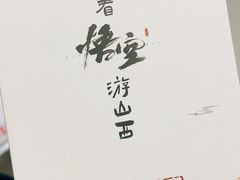 看
悟空
游山西